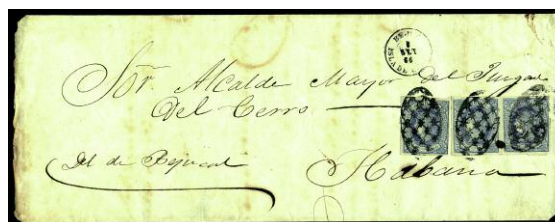 Sõr. Alcalde Mayor del Juzgado
Del Cerro
Del de Bejucal
Habana